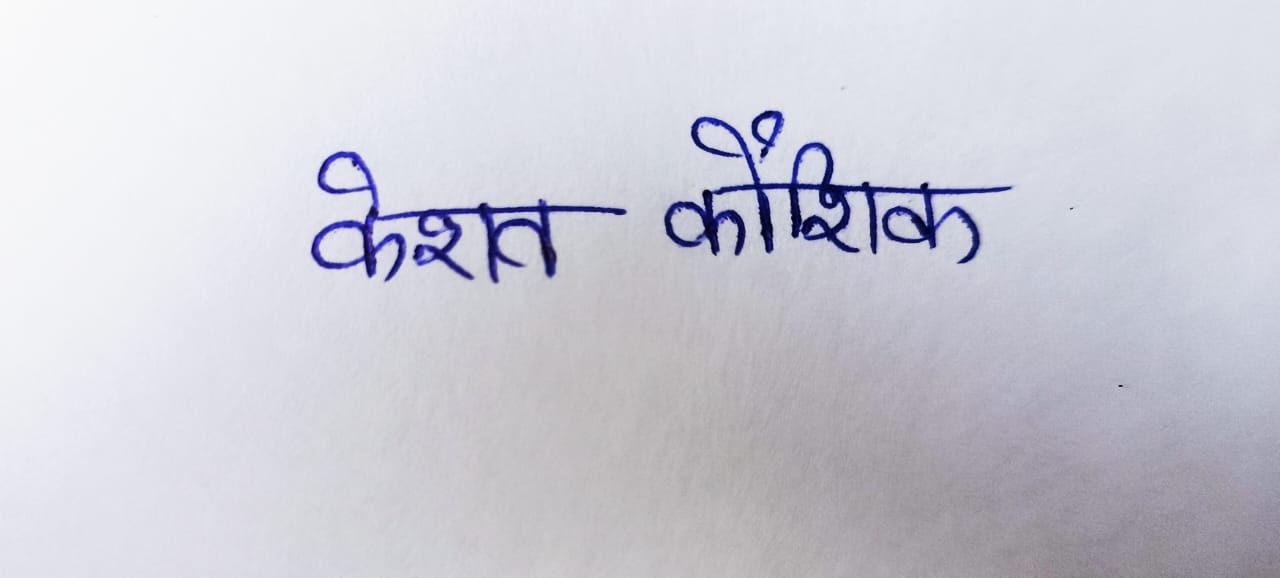 केशव कौशिक